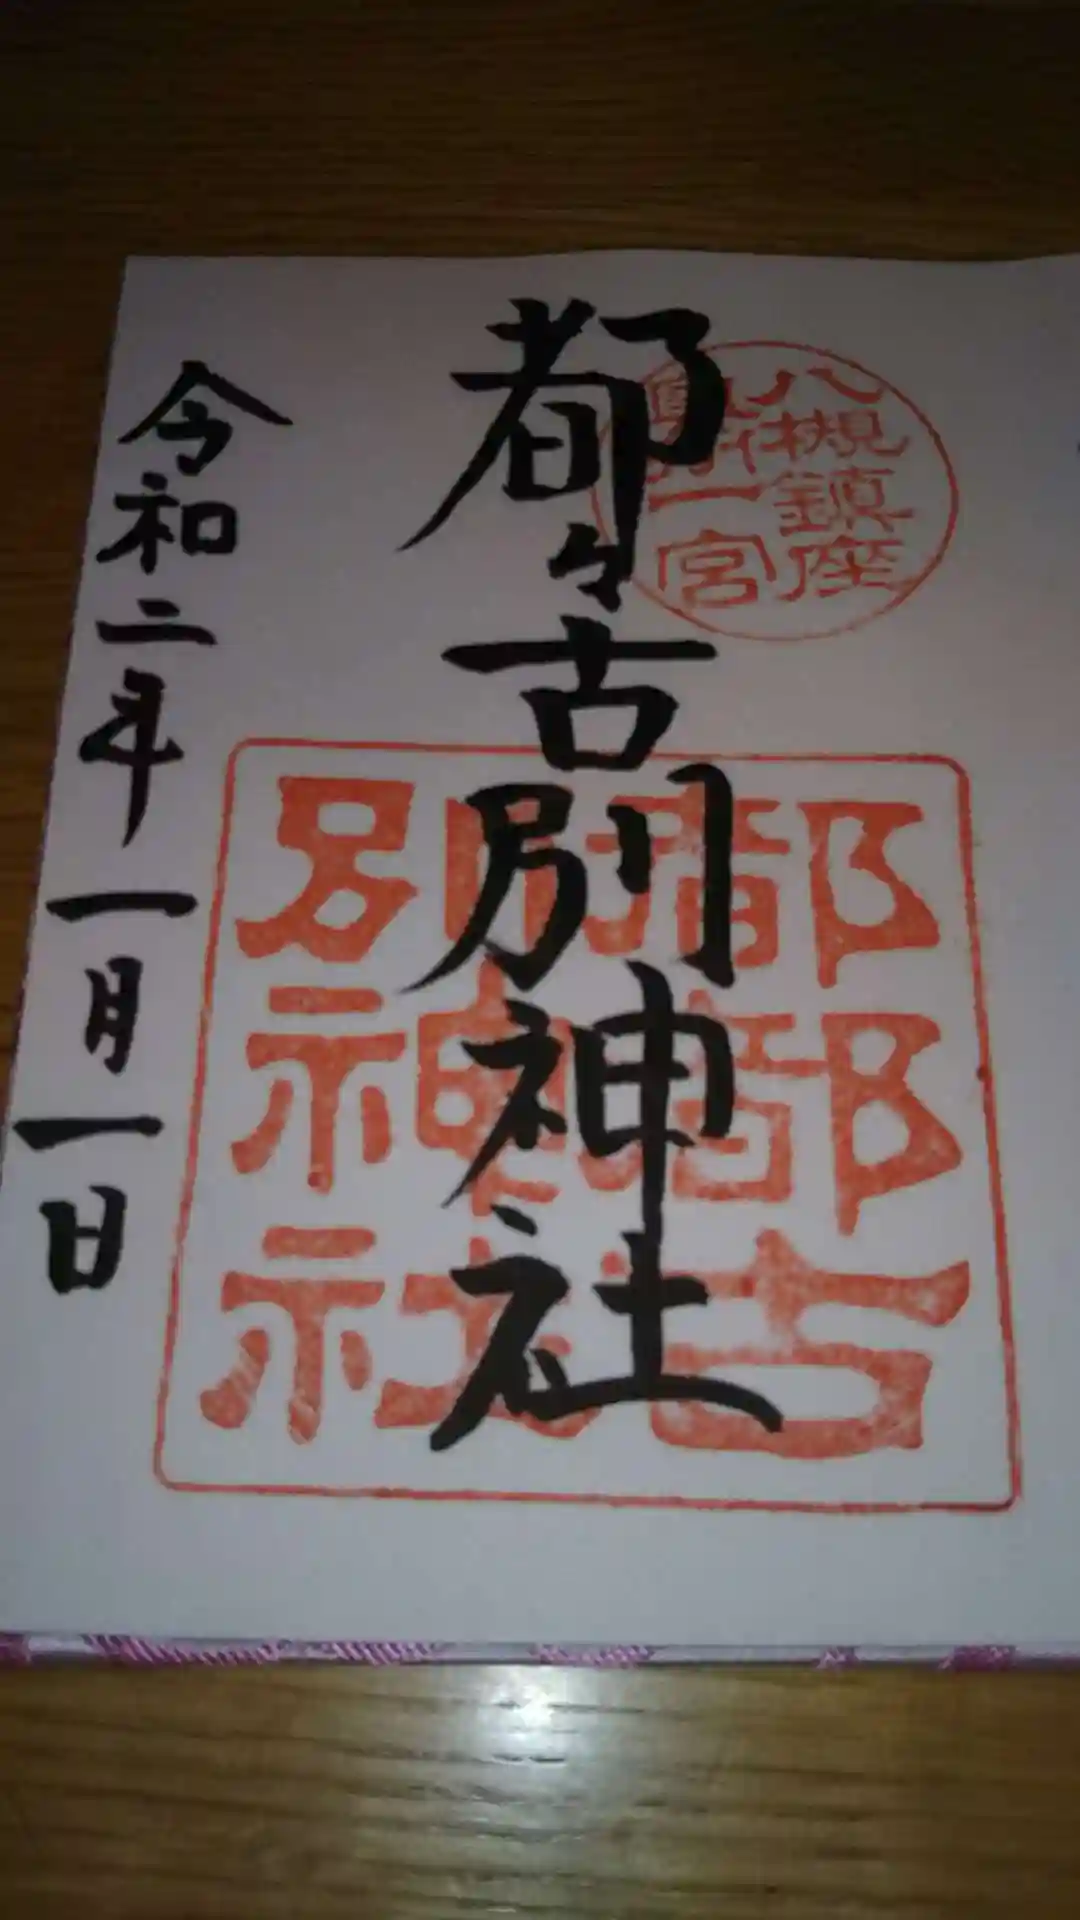 八槻鎮座
奥州一宮
都々古別神社
都都古
別神社
令和二年一月一日